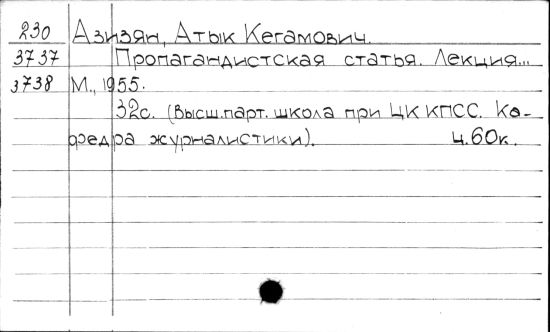 230 Азизян, Атык Кегамович.
3737 Пропагандистская статья. Лекция...
3738 М., 1955.
32с. (Высш.парт. школа при ЦК КПСС. Ка-
федра журналистики). ц.60к.